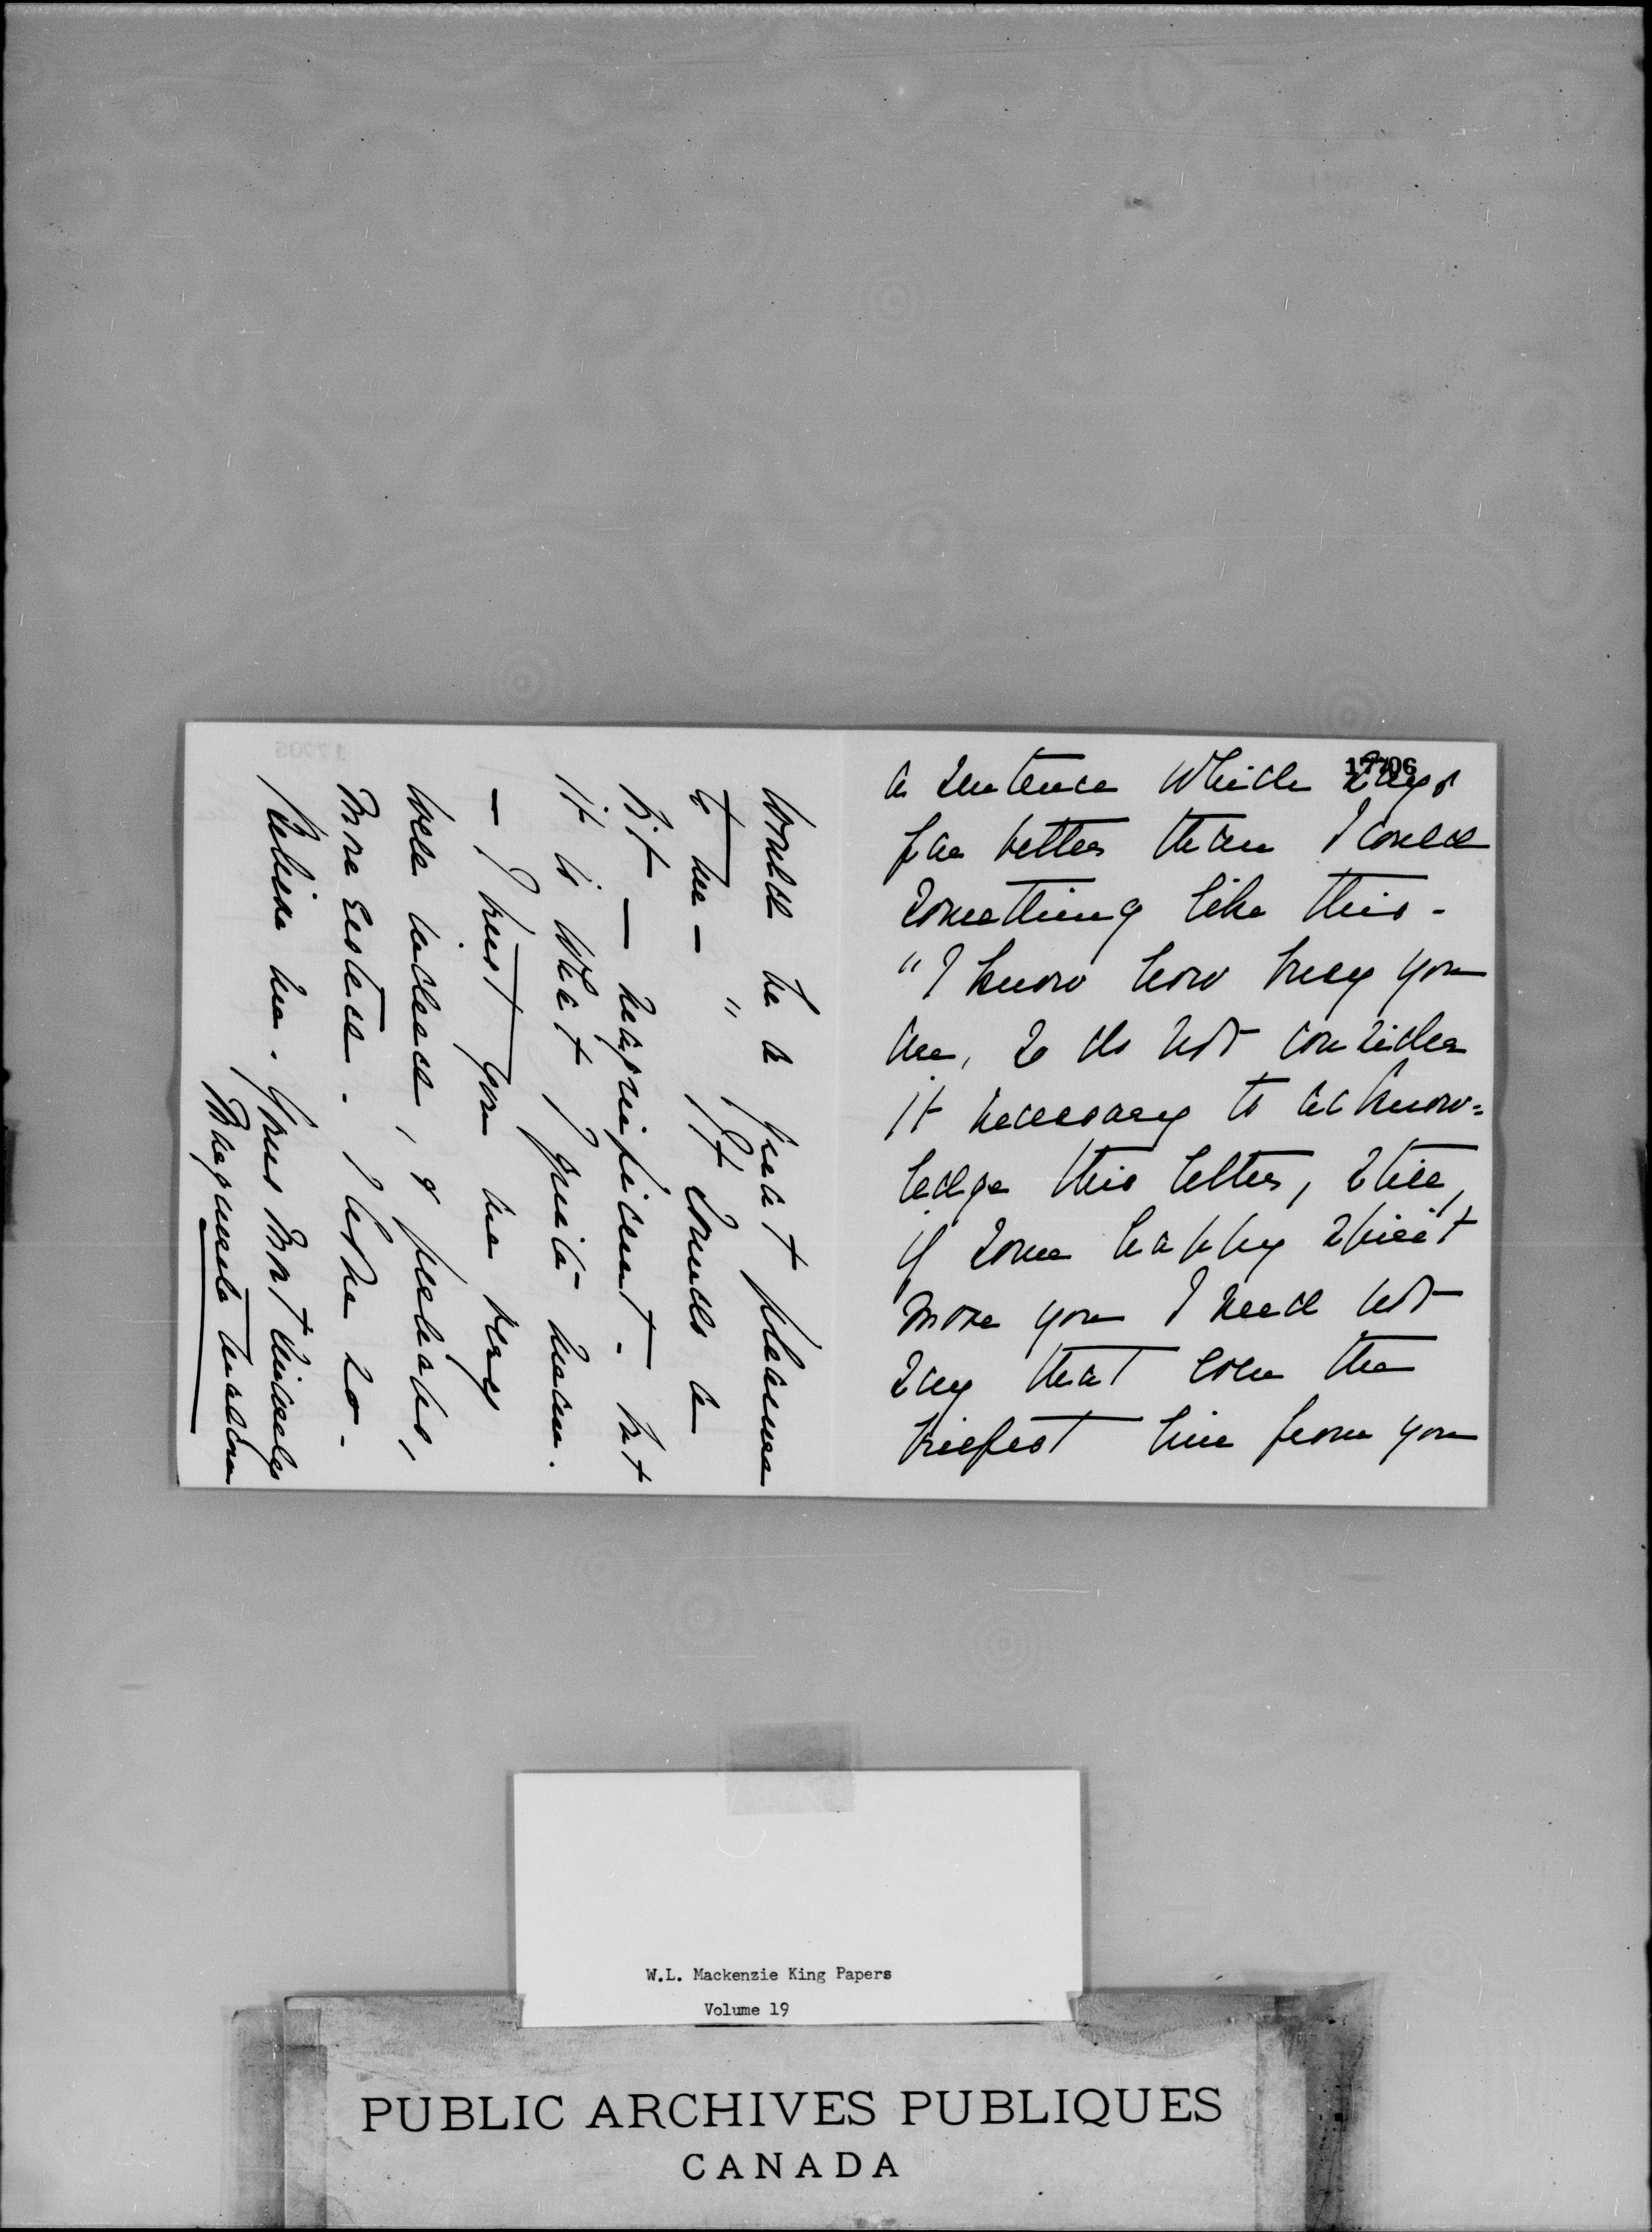 17706
a sentence which says
far better than I could
something like this -
"I know how busy you
are, so do not consider
it necessary to acknow=
ledge this letter, still,
if some happy spirit
move you I need not
say that even the
briefest line from you
would be a great pleasure
to me - " It sounds a
bit — magnificent - but
it is what I quite mean.
- I trust you are very
well indeed, & perhaps,
more rested. I hope so.
Believe me. Yours most sincerely
W.L. Mackenzie King Papers
Volume 19
PUBLIC ARCHIVES PUBLIQUES
CANADA